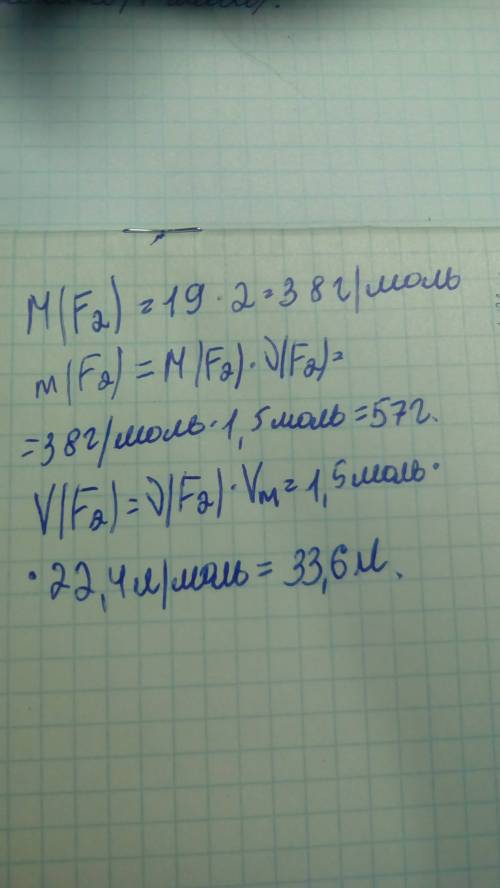 M(F₂) = 19 · 2 = 38 г/моль
m(F₂) = M(F₂) · ν(F₂) =
= 38 г/моль · 1,5 моль = 57 г.
V(F₂) = ν(F₂) · Vm = 1,5 моль ·
· 22,4 л/моль = 33,6 л.